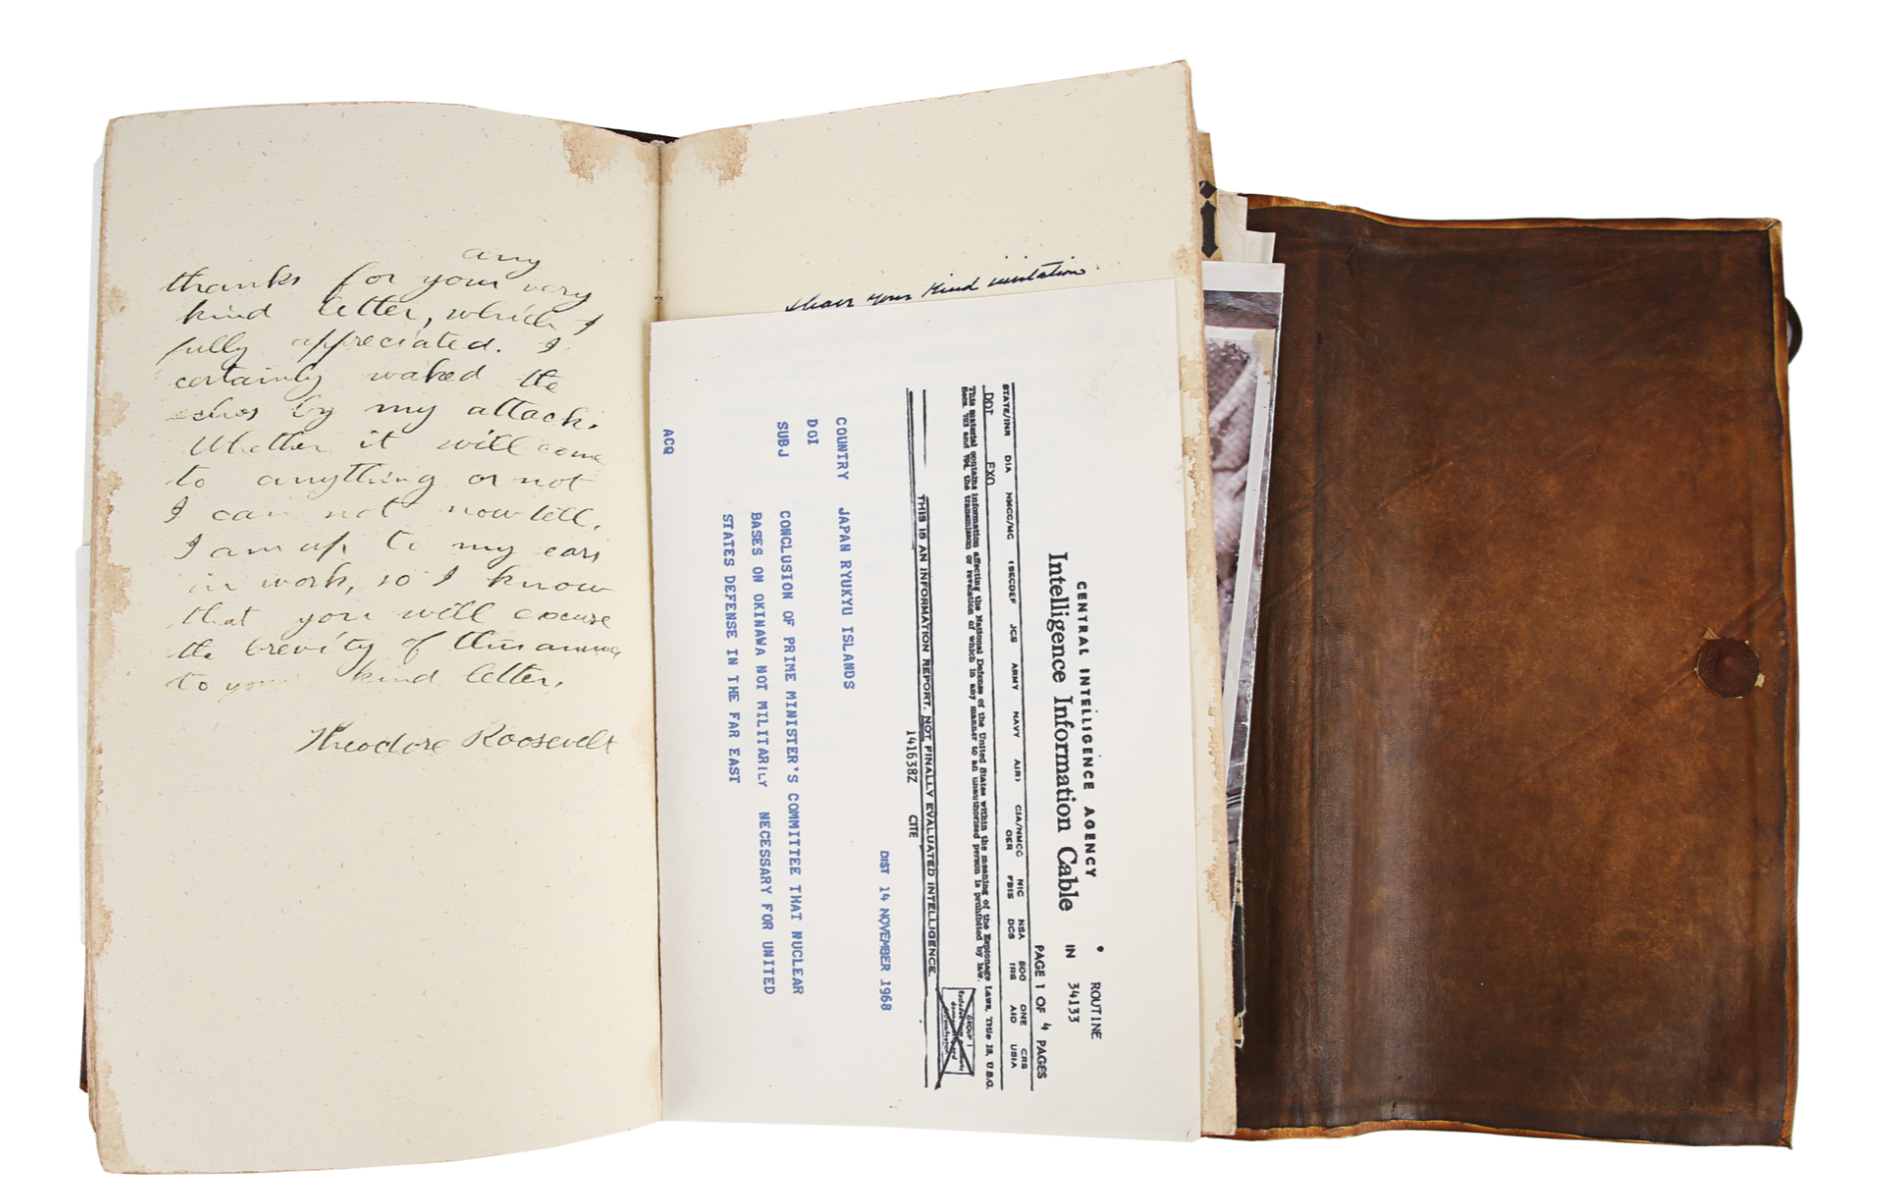 any
thanks for your very
kind letter, which I
fully appreciated. I
certainly waked the
echos by my attack.
Whether it will come
to anything or not
I can not now tell.
I am up to my ears
in work, so I know
that you will excuse
the brevity of this answer
to your kind letter.
Theodore Roosevelt
your kind invitation
CENTRAL INTELLIGENCE AGENCY • ROUTINE
Intelligence Information Cable IN 34133
PAGE 1 OF 4 PAGES
STATE/INR DIA NMCC/MC (SECDEF JCS ARMY NAVY AIR) CIA/NMCC NIC NSA SDO ONE CRS
DDI EXO OER FBIS DCS IRS AID USIA
This material contains information affecting the National Defense of the United States within the meaning of the Espionage Laws, Title 18, U.S.C.
Secs. 793 and 794, the transmission or revelation of which in any manner to an unauthorized person is prohibited by law.
GROUP 1
THIS IS AN INFORMATION REPORT, NOT FINALLY EVALUATED INTELLIGENCE.
141638Z CITE
DIST 14 NOVEMBER 1968
COUNTRY JAPAN RYUKYU ISLANDS
DOI
SUBJ CONCLUSION OF PRIME MINISTER'S COMMITTEE THAT NUCLEAR
BASES ON OKINAWA NOT MILITARILY NECESSARY FOR UNITED
STATES DEFENSE IN THE FAR EAST
ACQ